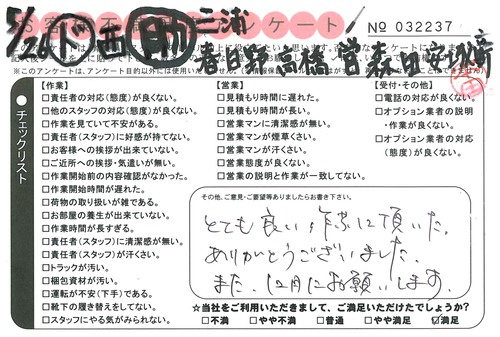 お客様不満足アンケート
№ 032237
三浦
春日部 高橋 営 森田
※このアンケートは、アンケート目的以外には使用いたしません。
チェックリスト
【作業】
□責任者の対応(態度)が良くない。
□他のスタッフの対応(態度)が良くない。
□作業を見ていて不安がある。
□責任者(スタッフ)に好感が持てない。
□お客様への挨拶が出来ていない。
□ご近所への挨拶・気遣いが無い。
□作業開始前の内容確認がなかった。
□作業開始時間が遅れた。
□荷物の取り扱いが雑である。
□お部屋の養生が出来ていない。
□作業時間が長すぎる。
□責任者(スタッフ)に清潔感が無い。
□責任者(スタッフ)が汗くさい。
□トラックが汚い。
□梱包資材が汚い。
□運転が不安(下手)である。
□靴下の履き替えをしてない。
□スタッフにやる気がみられない。
【営業】
□見積もり時間に遅れた。
□見積もり時間が長い。
□営業マンに清潔感が無い。
□営業マンが煙草くさい。
□営業マンが汗くさい。
□営業態度が良くない。
□営業の説明と作業が一致してない。
【受付・その他】
□電話の対応が良くない。
□オプション業者の説明
・作業が良くない。
□オプション業者の対応
(態度)が良くない。
その他、ご意見・ご要望等ありましたらお書き下さい。
とても良い作業に頂いた。
ありがとうございました。
また、12月にお願いします。
☆当社をご利用いただきまして、ご満足いただけたでしょうか?
□不満 □やや不満 □普通 □やや満足 ☑満足